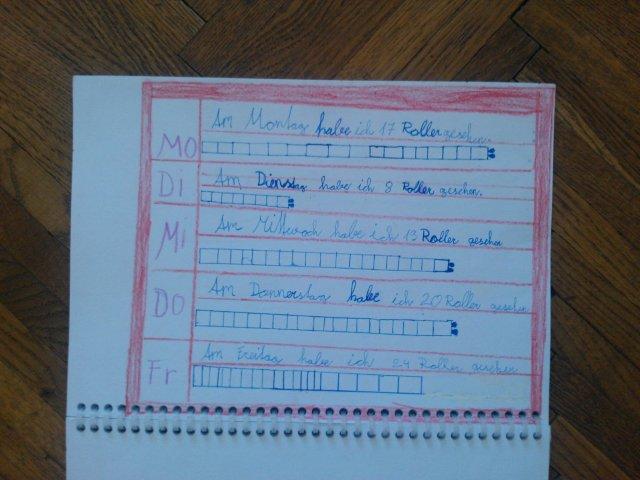 Am Montag habe ich 17 Roller gesehen.
MO
Di
Am Dienstag habe ich 8 Roller gesehen.
Mi
Am Mittwoch habe ich 13 Roller gesehen
Do
Am Donnerstag habe ich 20 Roller gesehen
Fr
Am Freitag habe ich Roller gesehen